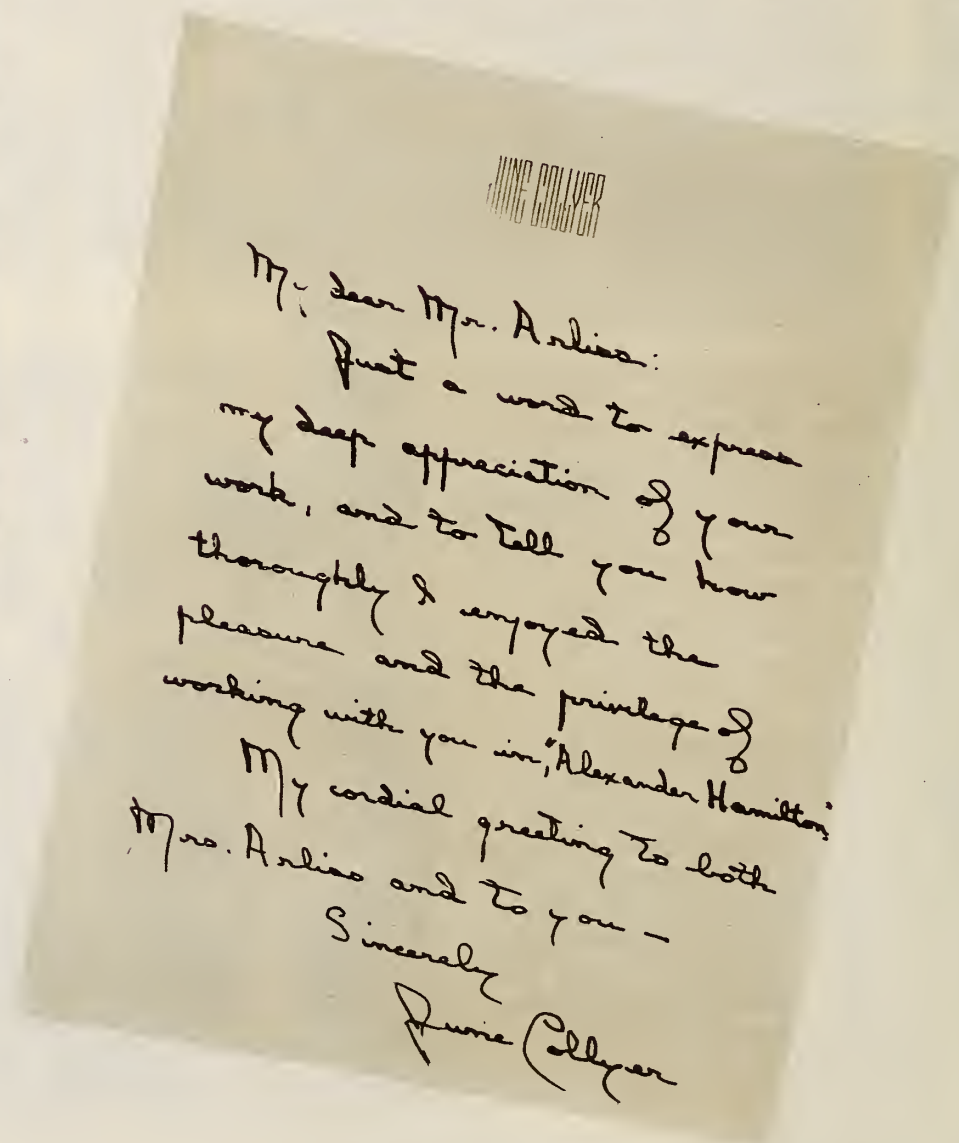 JUNE COLLYER
My dear Mr. Arliss:
Just a word to express
my deep appreciation of your
work, and to tell you how
thoroughly I enjoyed the
pleasure and the privilege of
working with you in, "Alexander Hamilton."
My cordial greeting to both
Mrs. Arliss and to you —
Sincerely
June Collyer